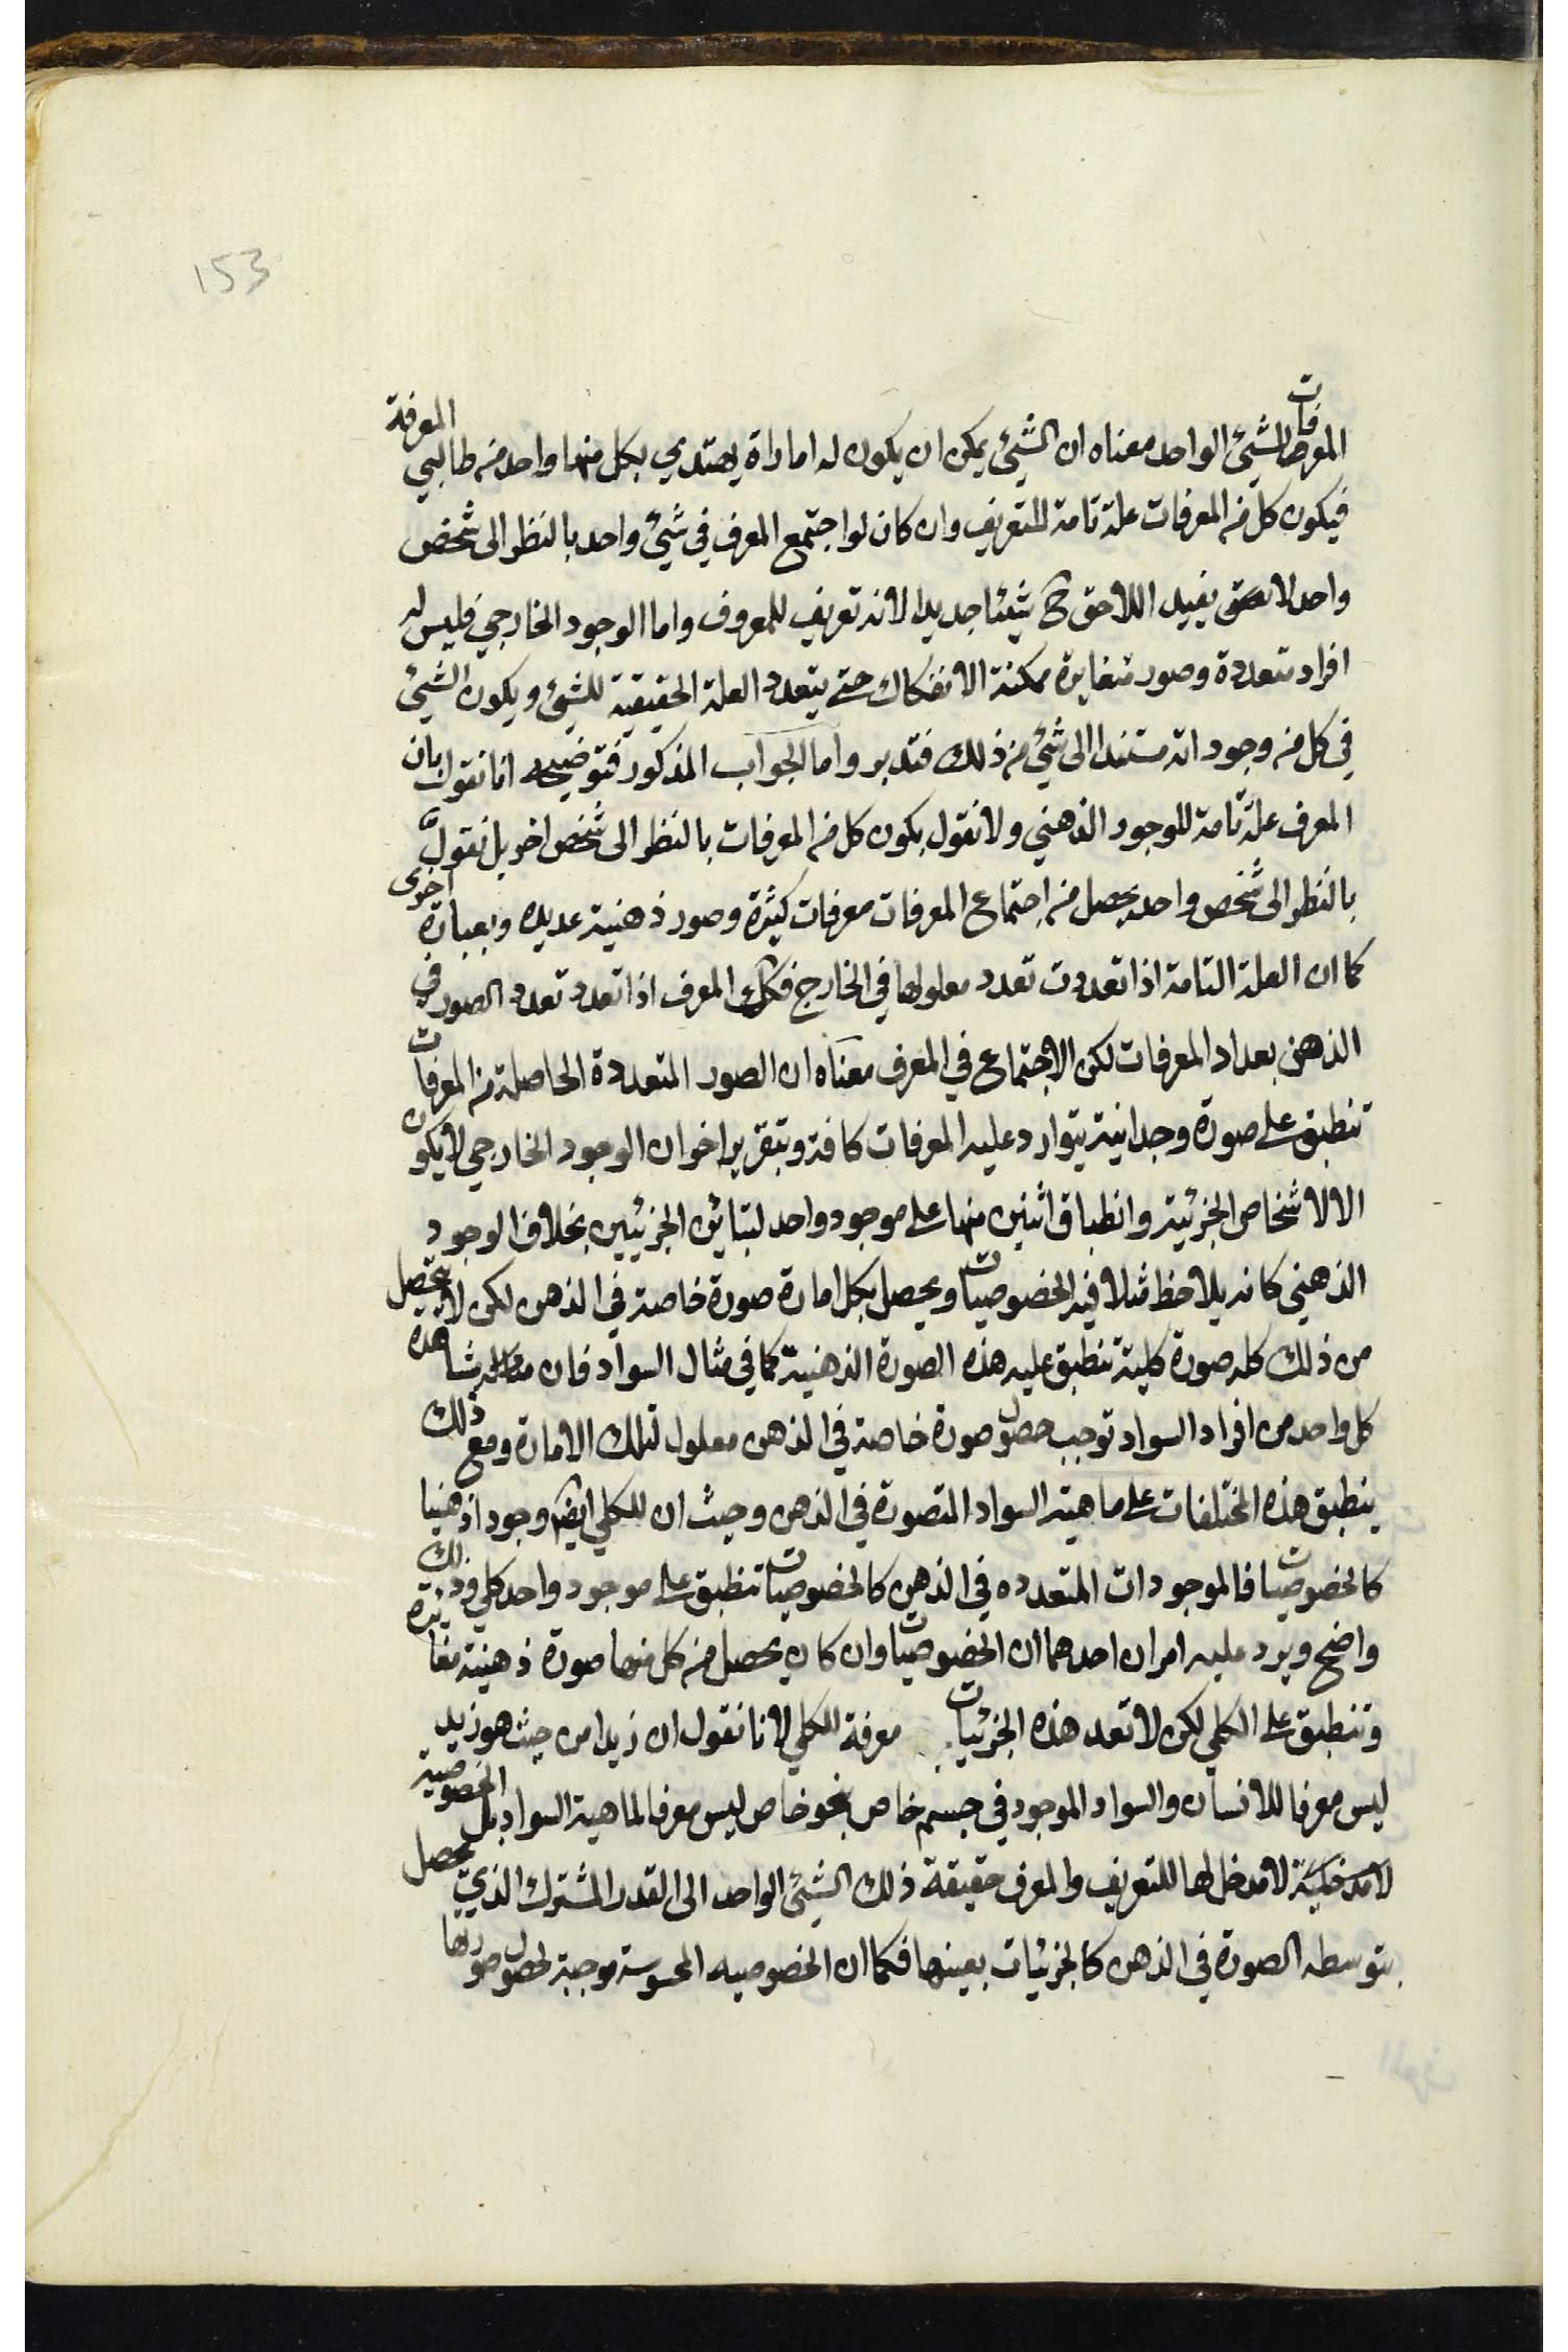 153
المعرفات للشيئ الواحد معناه ان الشيئ يمكن ان يكون له اماراة يهتدي بكل منها واحد من طالبي المعرفة
فيكون كل من المعرفات علة تامة للتعريف وان كان لو اجتمع المعرف في شيئ واحد بالنظر الى شخص
واحد لا يفيد اللاحق ح شيئا جديدا لانه تعريف للمعروف واما الوجود الخارجي فليس له
افراد متعددة وصور متغايرة ممكنة الانفكاك حتى يتعدد العلة الحقيقية للشيئ ويكون الشيئ
في كل من وجوداته مستندا الى شيئ من ذلك فتدبر واما الجواب المذكور فتوضيحه انا نقول بان
المعرف علة تامة للوجود الذهني ولا نقول بكون كل من المعرفات بالنظر الى شخص اخر بل نقول
بالنظر الى شخص واحد يحصل من اجتماع المعرفات معرفات كثيرة وصور ذهنية عديدة وبعبارة اخرى
كما ان العلة التامة اذا تعددت تعدد معلولها في الخارج فكك المعرف اذا تعدد تعدد الصور في
الذهن بعداد المعرفات لكن الاجتماع في المعرف معناه ان الصور المتعددة الحاصلة من المعرفات
تنطبق على صورة وجدانية يتوارد عليه المعرفات كافة وبتقرير اخر ان الوجود الخارجي لا يكون
الا لاشخاص الجزئية وانطباق اثنين منها على موجود واحد لتباين الجزئيين بخلاف الوجود
الذهني كانه يلاحظ مثلا فيه الخصوصيات ويحصل بكل امارة صورة خاصة في الذهن لكن لا يتحصل
من ذلك كله صورة كلية تنطبق عليه هذه الصورة الذهنية كما في مثال السواد فان مشاهدة
كل واحد من افراد السواد توجب حصول صورة خاصة في الذهن معلول لتلك الامارة ومع ذلك
ينطبق هذه المختلفات على ماهية السواد المتصورة في الذهن وحيث ان للكلي ايضا وجودا ذهنيا
كالخصوصيات فالموجودات المتعدده في الذهن كالخصوصيات تنطبق على موجود واحد كلي وذلك
واضح ويرد عليه امران احدهما ان الخصوصيات وان كان يحصل من كل منها صورة ذهنية مغايرة
وتنطبق على الكلي لكن لا تعد هذه الجزئيات معرفة للكلي لانا نقول ان زيدا من حيث هو زيد
ليس معرفا للانسان والسواد الموجود في جسم خاص بنحو خاص ليس معرفا لماهية السواد بل الخصوصية
لا مدخل لها للتعريف والمعرف حقيقة ذلك الشيئ الواحد الى القدر المشترك الذي يحصل
بتوسطه الصورة في الذهن كالجزئيات بعينها فكما ان الخصوصيه المحسوسة موجبة لحصول صورتها